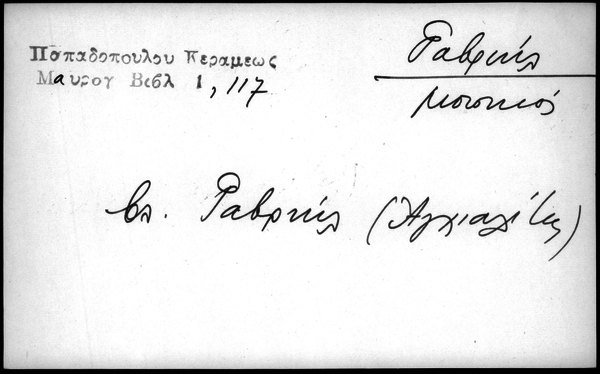 Παπαδοπουλου Κεραμεως
Μαυρογ Βιβλ 1, 117
Γαβριήλ
μουσικός
βλ. Γαβριήλ (Ἀγχιαλίτης)